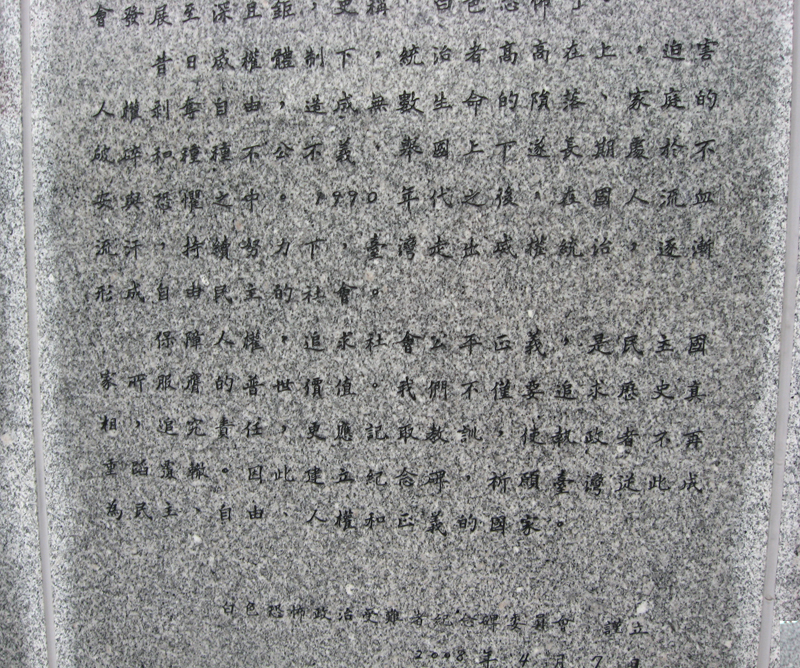 會發展至深且鉅，史稱「白色恐怖」。
昔日威權體制下，統治者高高在上，迫害
人權剝奪自由，造成無數生命的隕落、家庭的
破碎和種種不公不義，舉國上下遂長期處於不
安與恐懼之中。1990年代之後，在國人流血
流汗，持續努力下，臺灣走出威權統治，逐漸
形成自由民主的社會。
保障人權，追求社會公平正義，是民主國
家所服膺的普世價值。我們不僅要追求歷史真
相，追究責任，更應記取教訓，使執政者不再
重蹈覆轍。因此建立紀念碑，祈願臺灣從此成
為民主、自由、人權和正義的國家。
白色恐怖政治受難者紀念碑委員會 謹立
2008年4月7日